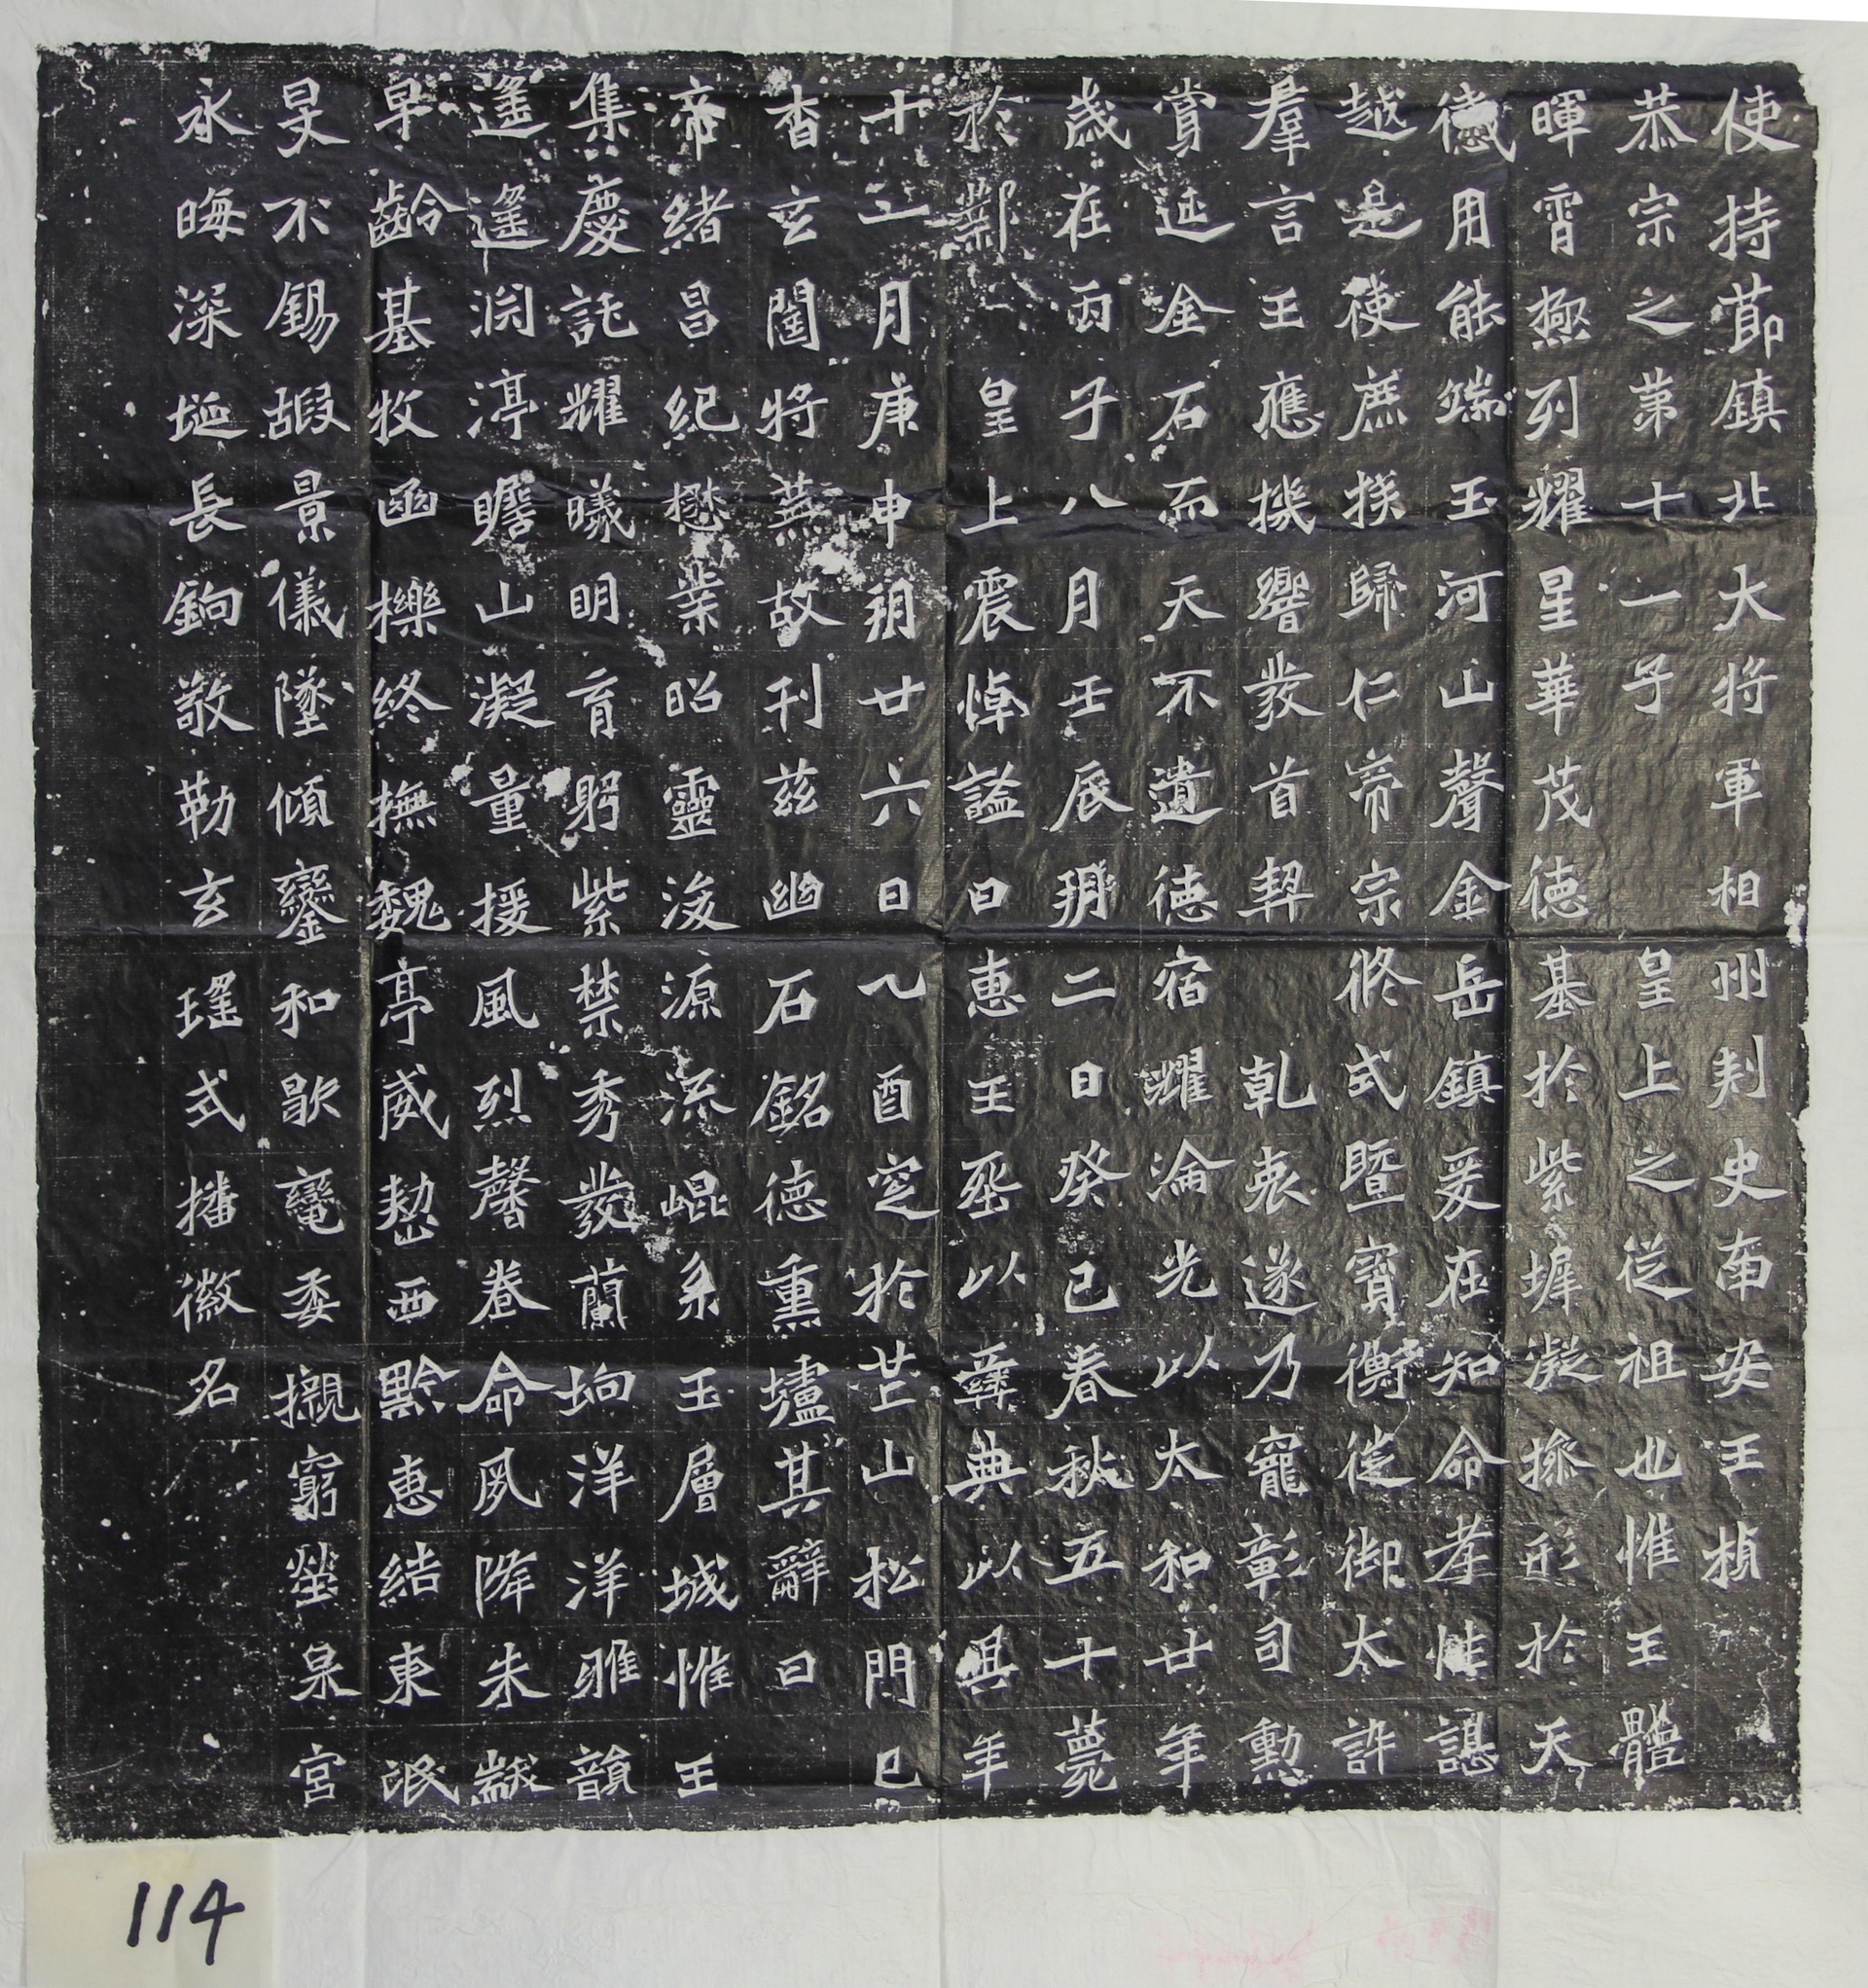 使持節鎮北大將軍相州刺史南安王楨
恭宗之第十一子皇上之從祖也惟王體
暉霄極列耀星華茂德基於紫墀凝操形於天
德用能端玉河山聲金岳鎮爰在知命孝性諶
越是使庶族歸仁帝宗攸式暨寶衡從御大許
羣言王應機響發首契乾衷遂乃寵彰司勳
賞延金石而天不遺德宿耀淪光以太和廿年
歲在丙子八月壬辰朔二日癸巳春秋五十薨
於鄴皇上震悼諡曰惠王㘸以彝典以其年
十一月庚申朔廿六日乙酉窆於芒山松門已
杳玄闥將蕪故刊茲幽石銘德熏壚其辭曰
帝緒昌紀懋業昭靈浚源流崐系玉層城惟王
集慶託耀曦明育躬紫禁秀發蘭坰洋洋雅韻
遙遙淵渟瞻山凝量援風烈馨卷命夙降朱黻
早齡基牧函櫟終撫魏亭威愬西黔惠結東氓
旻不錫嘏景儀墜傾鑾和歇𨏦委櫬窮塋泉宮
永晦深埏長鉤敬勒玄瑤式播徽名
114